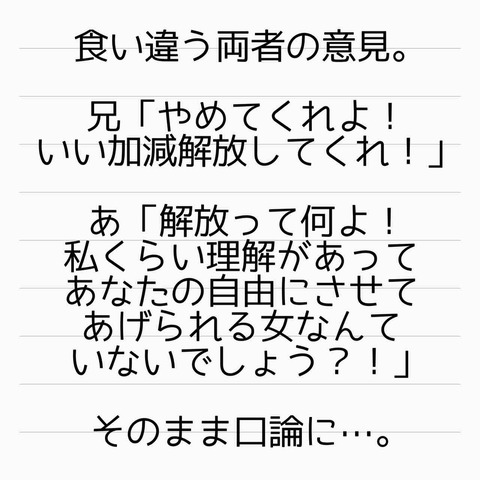 食い違う両者の意見。
兄「やめてくれよ！
いい加減解放してくれ！」
あ「解放って何よ！
私くらい理解があって
あなたの自由にさせて
あげられる女なんて
いないでしょう？！」
そのまま口論に…。